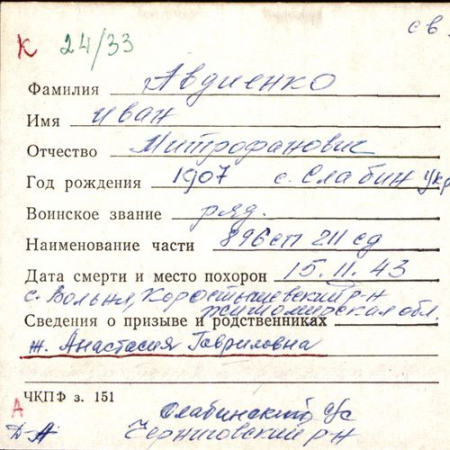 К 24/33 св
Фамилия Авдиенко
Имя Иван
Отчество Митрофанович
Год рождения 1907 с. Слабин Укр
Воинское звание ряд.
Наименование части 896 сп 211 сд
Дата смерти и место похорон 15.11.43
с. Вольня, Коростышевский р-н
Житомирская обл.
Сведения о призыве и родственниках
ж. Анастасия Гавриловна
ЧКПФ з. 151
А Слабинский с/с
Д-А Черниговский р-н